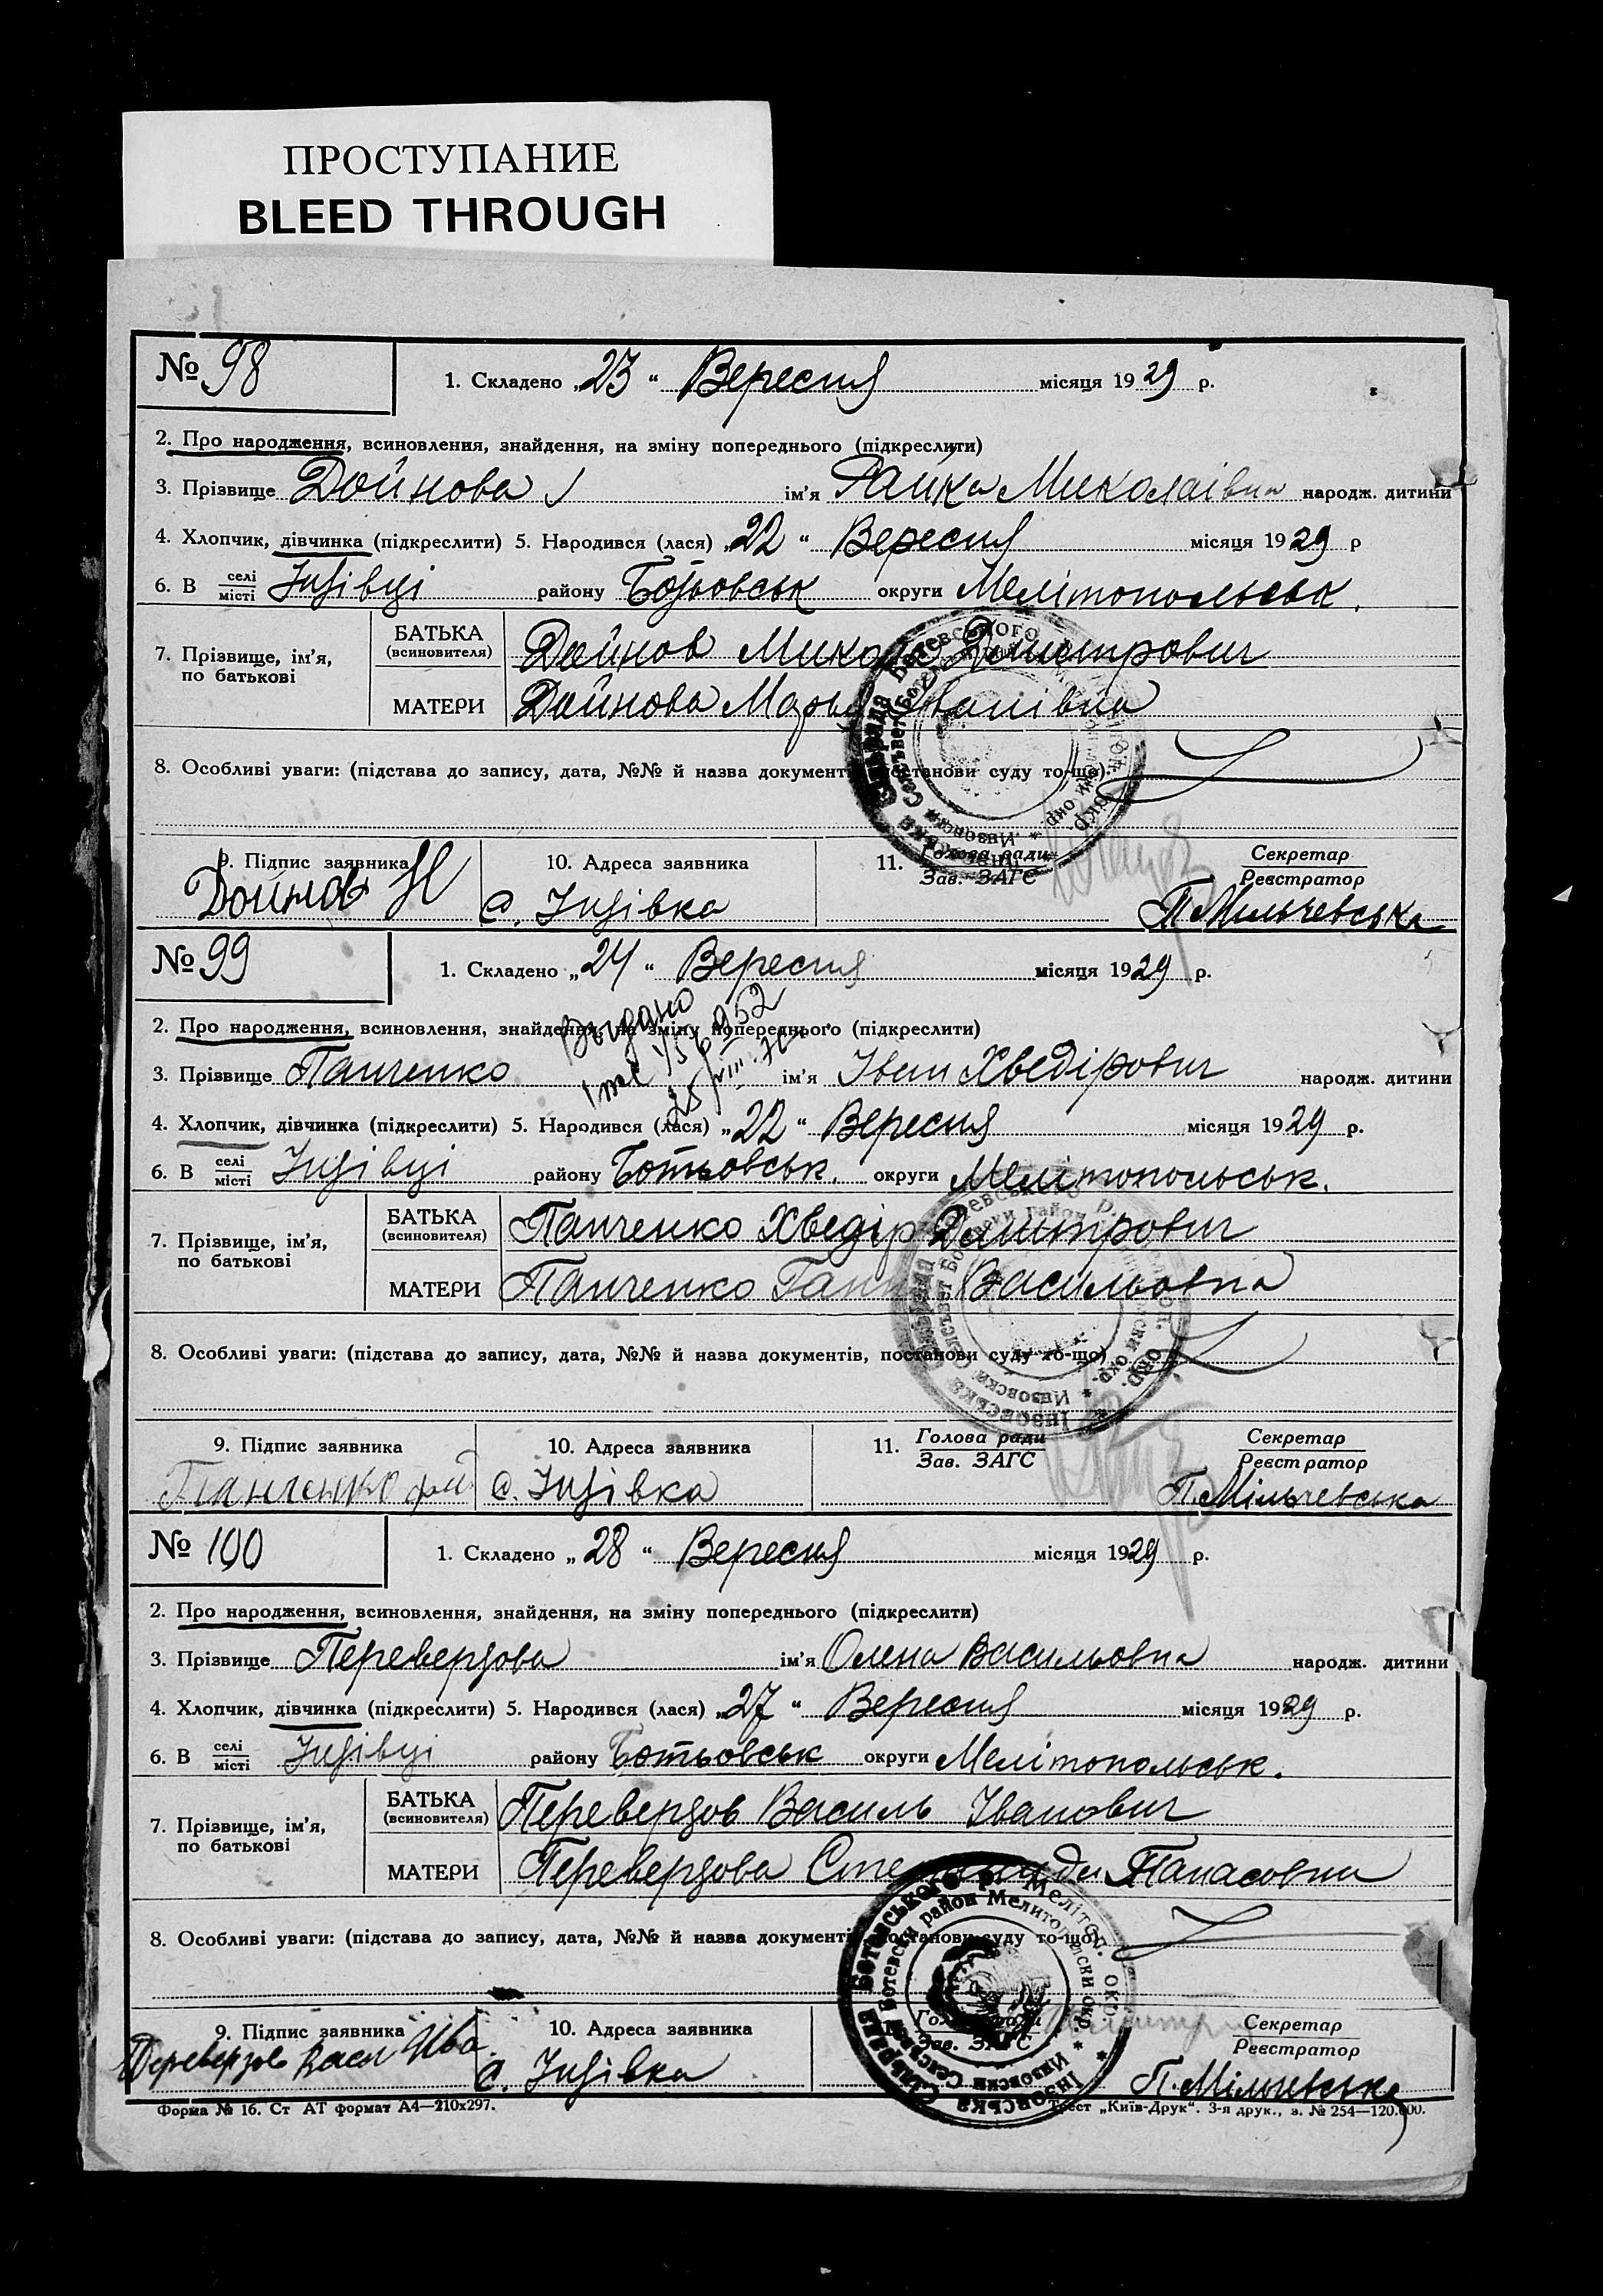 ПРОСТУПАНИЕ
BLEED THROUGH
№ 98
1. Складено „23“ Вересня місяця 1929 р.
2. Про народження, всиновлення, знайдення, на зміну попереднього (підкреслити)
3. Прізвище Дойнова ім'я Райка Миколаівна народж. дитини
4. Хлопчик, дівчинка (підкреслити) 5. Народився (лася) „22“ Вересня місяця 1929 р
6. В селі/місті Інзівці району Ботьовськ округи Мелітопольськ.
7. Прізвище, ім'я, по батькові
БАТЬКА (всиновителя) Дойнов Микола Дмитрович
МАТЕРИ Дойнова Марья Іванівна
8. Особливі уваги: (підстава до запису, дата, №№ й назва документів, постанови суду то-що)
9. Підпис заявника 10. Адреса заявника 11. Голова ради Секретар
Зав. ЗАГС Реєстратор
Дойнов Н с. Інзівка П. Мильчевська
№ 99
1. Складено „24“ Вересня місяця 1929 р.
Выдано
2. Про народження, всиновлення, знайдення, на зміну попереднього (підкреслити)
3. Прізвище Панченко ім'я Іван Хведірович народж. дитини
4. Хлопчик, дівчинка (підкреслити) 5. Народився (лася) „22“ Вересня місяця 1929 р.
6. В селі/місті Інзівці району Ботьовськ. округи Мелітопольськ.
7. Прізвище, ім'я, по батькові
БАТЬКА (всиновителя) Панченко Хведір Дмитрович
МАТЕРИ Панченко Ганна Васильовна
8. Особливі уваги: (підстава до запису, дата, №№ й назва документів, постанови суду то-що)
9. Підпис заявника 10. Адреса заявника 11. Голова ради Секретар
Зав. ЗАГС Реєстратор
Панченко с. Інзівка П. Мільчевська
№ 100
1. Складено „28“ Вересня місяця 1929 р.
2. Про народження, всиновлення, знайдення, на зміну попереднього (підкреслити)
3. Прізвище Перевертова ім'я Олена Васильовна народж. дитини
4. Хлопчик, дівчинка (підкреслити) 5. Народився (лася) „27“ Вересня місяця 1929 р.
6. В селі/місті Інзівці району Ботьовськ округи Мелітопольськ.
7. Прізвище, ім'я, по батькові
БАТЬКА (всиновителя) Перевертов Василь Іванович
МАТЕРИ Перевертова Степанида Панасовна
8. Особливі уваги: (підстава до запису, дата, №№ й назва документів, постанови суду то-що)
9. Підпис заявника 10. Адреса заявника Голова ради Секретар
Зав. ЗАГС Реєстратор
с. Інзівка П. Мільчевська
Форма № 16. Ст АТ формат А4—210х297. Трест „Київ-Друк“. 3-я друк., з. № 254—120.000.